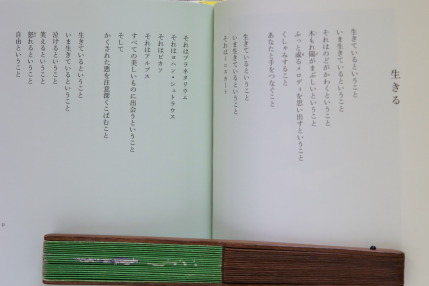 生きる
生きているということ
いま生きているということ
それはのどがかわくということ
木もれ陽がまぶしいということ
ふっと或るメロディを思い出すということ
くしゃみすること
あなたと手をつなぐこと
生きているということ
いま生きているということ
それはミニスカート
それはプラネタリウム
それはヨハン・シュトラウス
それはピカソ
それはアルプス
すべての美しいものに出会うということ
そして
かくされた悪を注意深くこばむこと
生きているということ
いま生きているということ
泣けるということ
笑えるということ
怒れるということ
自由ということ